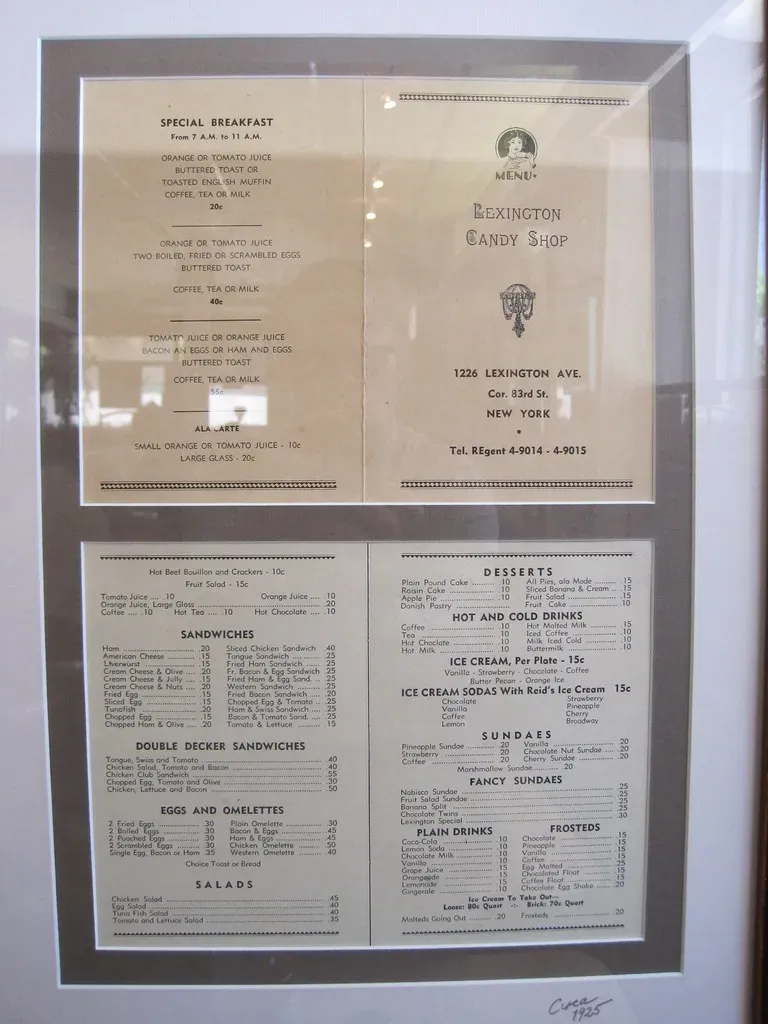 SPECIAL BREAKFAST
From 7 A.M. to 11 A.M.
ORANGE OR TOMATO JUICE
BUTTERED TOAST OR
TOASTED ENGLISH MUFFIN
COFFEE, TEA OR MILK
20c
ORANGE OR TOMATO JUICE
TWO BOILED, FRIED OR SCRAMBLED EGGS
BUTTERED TOAST
COFFEE, TEA OR MILK
40c
TOMATO JUICE OR ORANGE JUICE
BACON AN EGGS OR HAM AND EGGS
BUTTERED TOAST
COFFEE, TEA OR MILK
55c
ALA CARTE
SMALL ORANGE OR TOMATO JUICE - 10c
LARGE GLASS - 20c
MENU
LEXINGTON
CANDY SHOP
1226 LEXINGTON AVE.
Cor. 83rd St.
NEW YORK
Tel. REgent 4-9014 - 4-9015
Hot Beef Bouillon and Crackers - 10c
Fruit Salad - 15c
Tomato Juice .... .10 Orange Juice .... .10
Orange Juice, Large Glass .... .20
Coffee .... .10 Hot Tea .... .10 Hot Chocolate .... .10
SANDWICHES
Ham .... .20
American Cheese .... .15
Liverwurst .... .15
Cream Cheese & Olive .... .20
Cream Cheese & Jully .... .15
Cream Cheese & Nuts .... .20
Fried Egg .... .15
Sliced Egg .... .15
Tunafish .... .20
Chopped Egg .... .15
Chopped Ham & Olive .... .20
Sliced Chicken Sandwich .40
Tongue Sandwich .... .25
Fried Ham Sandwich .... .25
Fr. Bacon & Egg Sandwich .25
Fried Ham & Egg Sand. .. .25
Western Sandwich .... .25
Fried Bacon Sandwich .... .20
Chopped Egg & Tomato .. .25
Ham & Swiss Sandwich .... .25
Bacon & Tomato Sand. .... .25
Tomato & Lettuce .... .15
DOUBLE DECKER SANDWICHES
Tongue, Swiss and Tomato .... .40
Chicken Salad, Tomato and Bacon .... .40
Chicken Club Sandwich .... .55
Chopped Egg, Tomato and Olive .... .30
Chicken, Lettuce and Bacon .... .50
EGGS AND OMELETTES
2 Fried Eggs .... .30
2 Boiled Eggs .... .30
2 Poached Eggs .... .30
2 Scrambled Eggs .... .30
Single Egg, Bacon or Ham .35
Plain Omelette .... .30
Bacon & Eggs .... .45
Ham & Eggs .... .45
Chicken Omelette .... .50
Western Omelette .... .40
Choice Toast or Bread
SALADS
Chicken Salad .... .45
Egg Salad .... .40
Tuna Fish Salad .... .40
Tomato and Lettuce Salad .... .35
DESSERTS
Plain Pound Cake .... .10
Raisin Cake .... .10
Apple Pie .... .10
Danish Pastry .... .10
All Pies, ala Mode .... .15
Sliced Banana & Cream .. .15
Fruit Salad .... .15
Fruit Cake .... .10
HOT AND COLD DRINKS
Coffee .... .10
Tea .... .10
Hot Choclate .... .10
Hot Milk .... .10
Hot Malted Milk .... .15
Iced Coffee .... .10
Milk Iced Cold .... .10
Buttermilk .... .10
ICE CREAM, Per Plate - 15c
Vanilla - Strawberry - Chocolate - Coffee
Butter Pecan - Orange Ice
ICE CREAM SODAS With Reid's Ice Cream 15c
Chocolate
Vanilla
Coffee
Lemon
Strawberry
Pineapple
Cherry
Broadway
SUNDAES
Pineapple Sundae .... .20
Strawberry .... .20
Coffee .... .20
Vanilla .... .20
Chocolate Nut Sundae .... .20
Cherry Sundae .... .20
Marshmallow Sundae .... .20
FANCY SUNDAES
Nabisco Sundae .... .25
Fruit Salad Sundae .... .25
Banana Split .... .25
Chocolate Twins .... .25
Lexington Special .... .30
PLAIN DRINKS
Coca-Cola .... .10
Lemon Soda .... .10
Chocolate Milk .... .10
Vanilla .... .10
Grape Juice .... .15
Orangeade .... .15
Lemonade .... .15
Gingerale .... .10
FROSTEDS
Chocolate .... .15
Pineapple .... .15
Vanilla .... .15
Coffee .... .15
Egg Malted .... .25
Chocolated Float .... .15
Coffee Float .... .15
Chocolate Egg Shake .... .20
Ice Cream To Take Out—
Loose: 80c Quart -:- Brick: 70c Quart
Malteds Going Out .... .20 Frosteds .... .20
Circa
1925